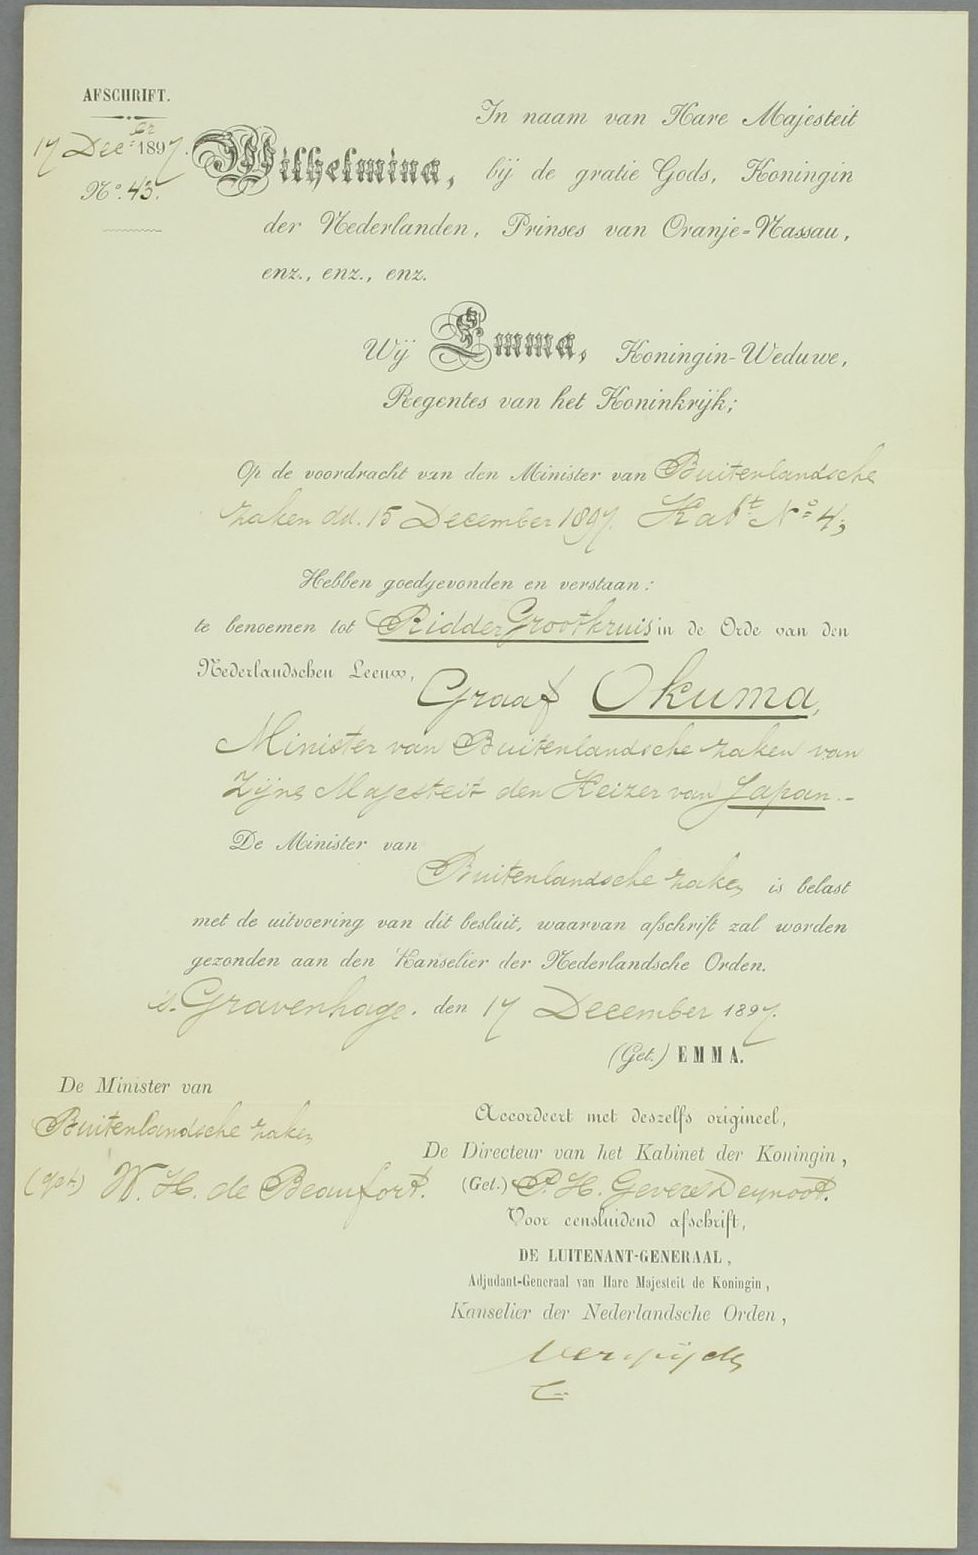 AFSCHRIFT.
17 Dec.br 1897.
No. 43.
In naam van Hare Majesteit
Wilhelmina, bij de gratie Gods, Koningin
der Nederlanden, Prinses van Oranje-Nassau,
enz., enz., enz.
Wij Emma, Koningin-Weduwe,
Regentes van het Koninkrijk;
Op de voordracht van den Minister van Buitenlandsche
Zaken dd. 15 December 1897. Kabt No 4;
Hebben goedgevonden en verstaan:
te benoemen tot Ridder Grootkruis in de Orde van den
Nederlandschen Leeuw, Graaf Okuma,
Minister van Buitenlandsche Zaken van
Zijne Majesteit den Keizer van Japan.-
De Minister van
Buitenlandsche Zaken is belast
met de uitvoering van dit besluit, waarvan afschrift zal worden
gezonden aan den Kanselier der Nederlandsche Orden.
's-Gravenhage. den 17 December 1897.
(Get.) EMMA.
De Minister van
Buitenlandsche Zaken
(get) W. H. de Beaufort.
Accordeert met deszelfs origineel,
De Directeur van het Kabinet der Koningin,
(Get.) P. H. Gevers Deynoot.
Voor eensluidend afschrift,
DE LUITENANT-GENERAAL,
Adjudant-Generaal van Hare Majesteit de Koningin,
Kanselier der Nederlandsche Orden,
Verspijck